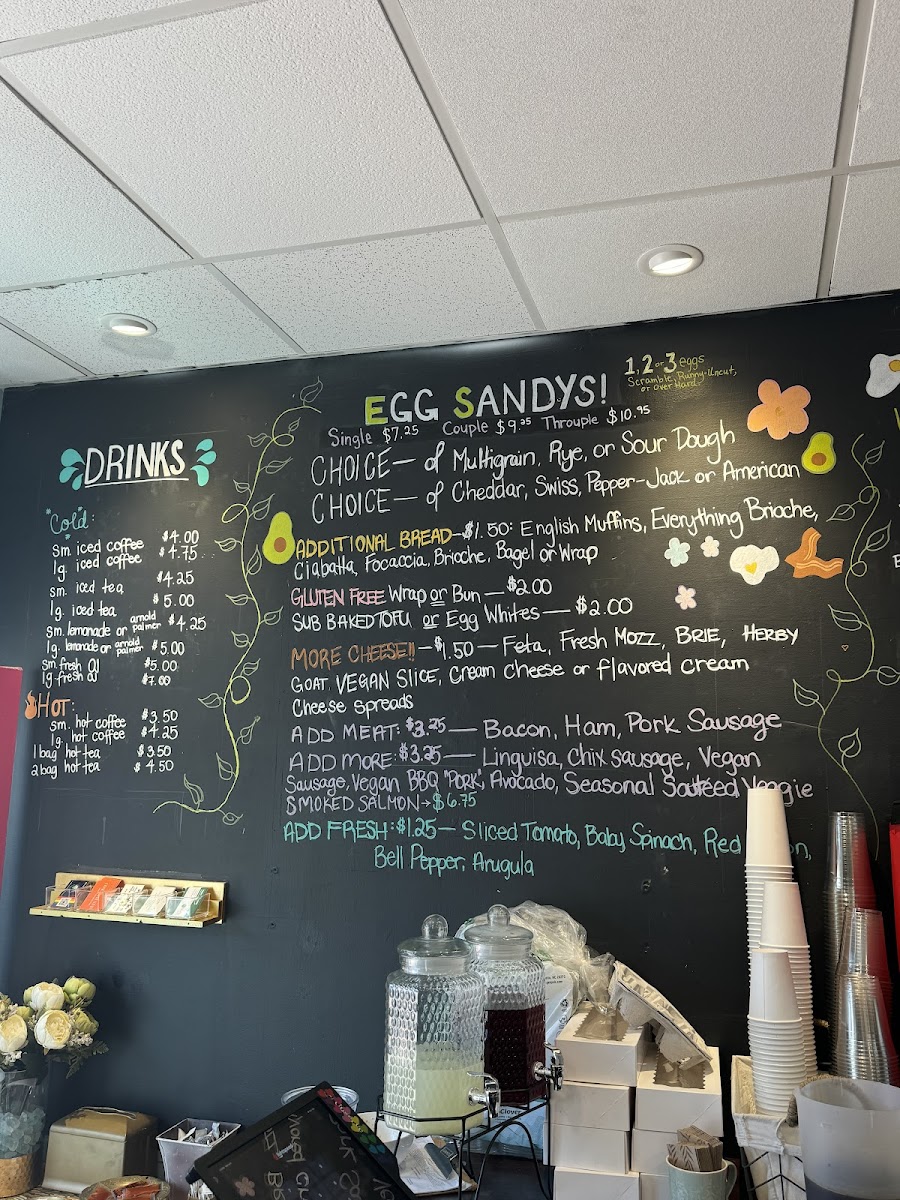 DRINKS
"Cold":
sm. iced coffee $4.00
lg. iced coffee $4.75
sm. iced tea $4.25
lg. iced tea $5.00
sm. lemonade or arnold palmer $4.25
lg. lemonade or arnold palmer $5.00
sm fresh OJ $5.00
lg fresh OJ $7.00
HOT:
sm. hot coffee $3.50
lg. hot coffee $4.25
1 bag hot tea $3.50
2 bag hot tea $4.50
EGG SANDYS!
1, 2 or 3 eggs
Scramble, Runny-Uncut,
or Over Hard
Single $7.25 Couple $9.25 Throuple $10.95
CHOICE— of Multigrain, Rye, or Sour Dough
CHOICE— of Cheddar, Swiss, Pepper-Jack or American
ADDITIONAL BREAD-$1.50: English Muffins, Everything Brioche,
Ciabatta, Focaccia, Brioche, Bagel or Wrap
GLUTEN FREE Wrap or Bun — $2.00
SUB BAKED TOFU or Egg Whites — $2.00
MORE CHEESE!! — $1.50 — Feta, Fresh Mozz, BRIE, HERBY
GOAT, VEGAN SLICE, Cream Cheese or flavored cream
Cheese spreads
ADD MEAT: $3.25 — Bacon, Ham, Pork Sausage
ADD MORE: $3.25 — Linguisa, Chix sausage, Vegan
Sausage, Vegan BBQ "Pork", Avocado, Seasonal Sautéed Veggie
SMOKED SALMON→$6.75
ADD FRESH: $1.25 — Sliced Tomato, Baby Spinach, Red
Bell Pepper, Arugula